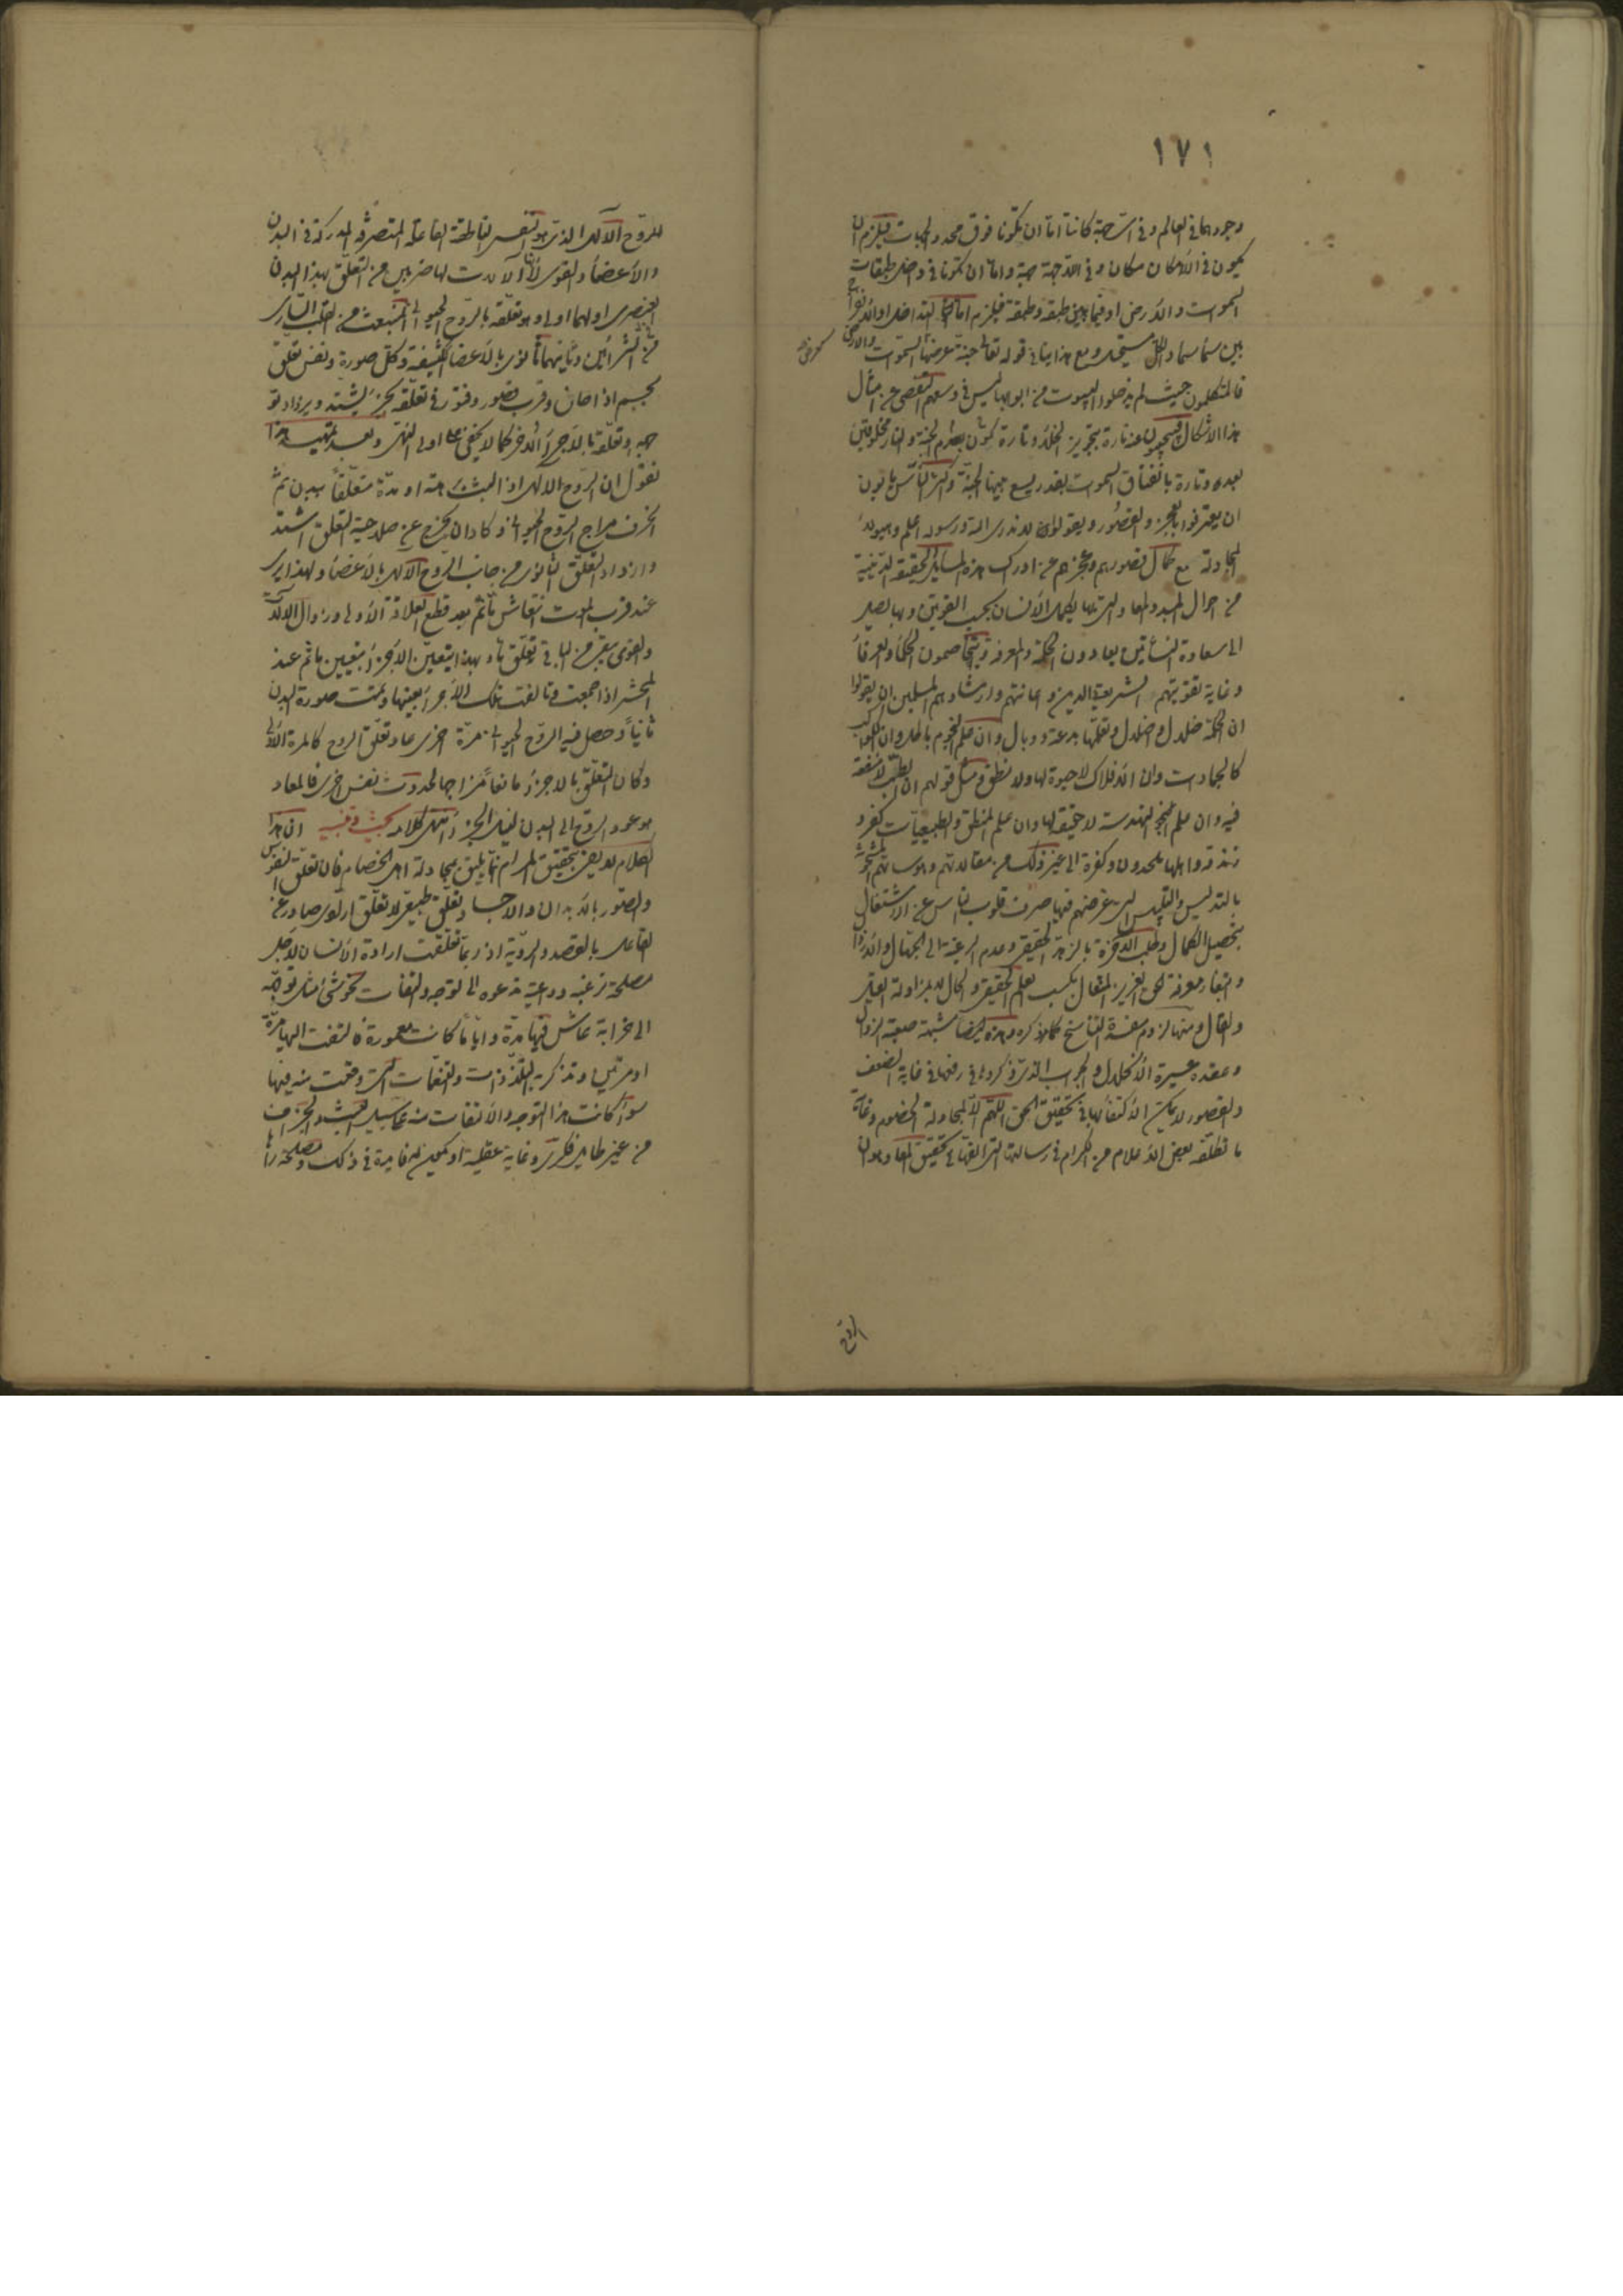 ١٧١
وجودهما في العالم وفي أي جهة كانتا اما ان تكونا فوق محدد الجهات فيلزم ان
يكون في اللامكان مكان وفي اللاجهة جهة واما ان تكونا في داخل طبقات
السموات والأرض او فيما بين طبقة وطبقة فيلزم اما التداخل او الانفراج
بين سماء وسماء والكل مستحيل ومع هذا ينافي قوله تعالى جنة عرضها السموات والارض
فالمتكلمون حيث لم يدخلوا البيوت من ابوابها ليس في وسعهم التفصي عن امثال
هذا الاشكال فيجيبون عنه تارة بتجويز الخلاء وتارة بعدم كون الجنة والنار مخلوقتين
بعد وتارة بانفتاق السموات بقدر يسع بينها الجنة واكثر الناس يأبون
ان يعترفوا بالعجز والقصور ويقولون لا ندري الله ورسوله اعلم وهؤلاء
المجادلة مع كمال قصورهم وعجزهم عن ادراك هذه المسائل الحقيقة الدينية
من احوال المبدء والمعاد والتي بها يكمل الأنسان بحسب القوتين وبها يصل
الى سعادة النشأتين يعادون الحكمة والمعرفة ويخاصمون الحكماء والعرفاء
وغاية تقويتهم الشريعة والدين واعانتهم وارشادهم المسلمين ان يقولوا
ان الحكمة ضلال واضلال وتعلمها بدعة ووبال وان علم النجوم باطل وان الكواكب
كالجمادات وان الأفلاك لا حيوة لها ولا نطق ومثل قولهم ان الطب لا منفعة
فيه وان علم الهندسة لا حقيقة لها وان علم المنطق والطبيعيات كفر و
زندقه واهلها ملحدون وكفرة الى غير ذلك من مقالاتهم وهوساتهم المشحونة
بالتدليس والتلبيس التي غرضهم فيها صرف قلوب الناس عن الاشتغال
بتحصيل الكمال وطلب الآخرة بالزهد الحقيقي وعدم الرغبة الى الجهال والأرذال
وابتغاء معرفة الحق العزيز المتعال بكسب العلم الحقيقي والحال لا بمزاولة القيل
والقال ومنها لزوم مفسدة التناسخ كما مر ذكره وهذه ايضا شبهة صعبة الزوال
وعقدة عسيرة الأنحلال والجواب الذي ذكروه في رفعها في غاية الضعف
والقصور لا يمكن الأكتفاء بها في تحقيق الحق اللهم الا لمجادلة الخصوم وغاية
ما تكلفه بعض الأعلام من الكرام في رسالته التي الفها في تحقيق المعاد هو ان
للروح
للروح الآلهي الذي هو النفس الناطقة الفاعلة المتصرفة المدركة في البدن
والأعضاء والقوى لأنها آلات لها ضربين من التعلق بهذا البدن
العنصري اولهما اولي وهو تعلقه بالروح الحيواني المنبعث من القلب الساري
في الشرائين وثانيهما ثانوي بالأعضاء الكثيفة وكل صورة ونفس تعلق
بجسم اذا حان وقرب قصور وفتور في تعلقه بجزء يشتد ويزداد تو
جهه وتعلقه بالأجزاء الأخر كما لا يخفى على اولى النهى وبعد تمهيد هذا
نقول ان الروح الالهي اذا لبث سنة او مدة متعلقاً ببدن ثم
انحرف مزاج الروح الحيواني وكاد ان يخرج عن صلاحية التعلق اشتد
وازداد التعلق الثانوي من جانب الروح الآلهي بالأعضاء ولهذا يرى
عند قرب الموت انتعاش ما ثم بعد قطع العلاقة الأولى وزوال الآلة
والقوى يبقى من الباقي تعلق ما وبهذا يتعين الأجزاء تعيين ما ثم عند
المحشر اذا جمعت وتألفت تلك الأجزاء بعينها وتمت صورة البدن
ثانياً وحصل فيه الروح الحيواني مرة اخرى عاد تعلق الروح كالمرة الأولى
وكان التعلق بالاجزاء مانعاً مزاحما لحدوث نفس اخرى فالمعاد
هو عود الروح الى البدن لنيل الجزاء انتهى كلامه بحث وتنبيه ان هذا
الكلام لا يفي بتحقيق المرام وانما يليق بمجادلة اهل الخصام فان تعلق النفوس
والصور بالأبدان والاجساد تعلق طبيعي لا تعلق ارادي صادر عن
الفاعل بالقصد والروية اذ ربما تعلقت ارادة الأنسان لأجل
مصلحة ترغبه وداعية تدعوه الى التوجه والتفات نحو شيء مثل توجهه
الى خرابة عاش فيها مدة واياما كانت معمورة فالتفت اليها مرة
او مرتين او تذكر به التلذذات والتنعمات التي وقعت منه فيها
سواء كانت هذا التوجه والألتفات منه على سبيل العبث والجزاف
من غير طائل فكري وغاية عقلية او يكون له فايدة في ذلك ومصلحة رآها